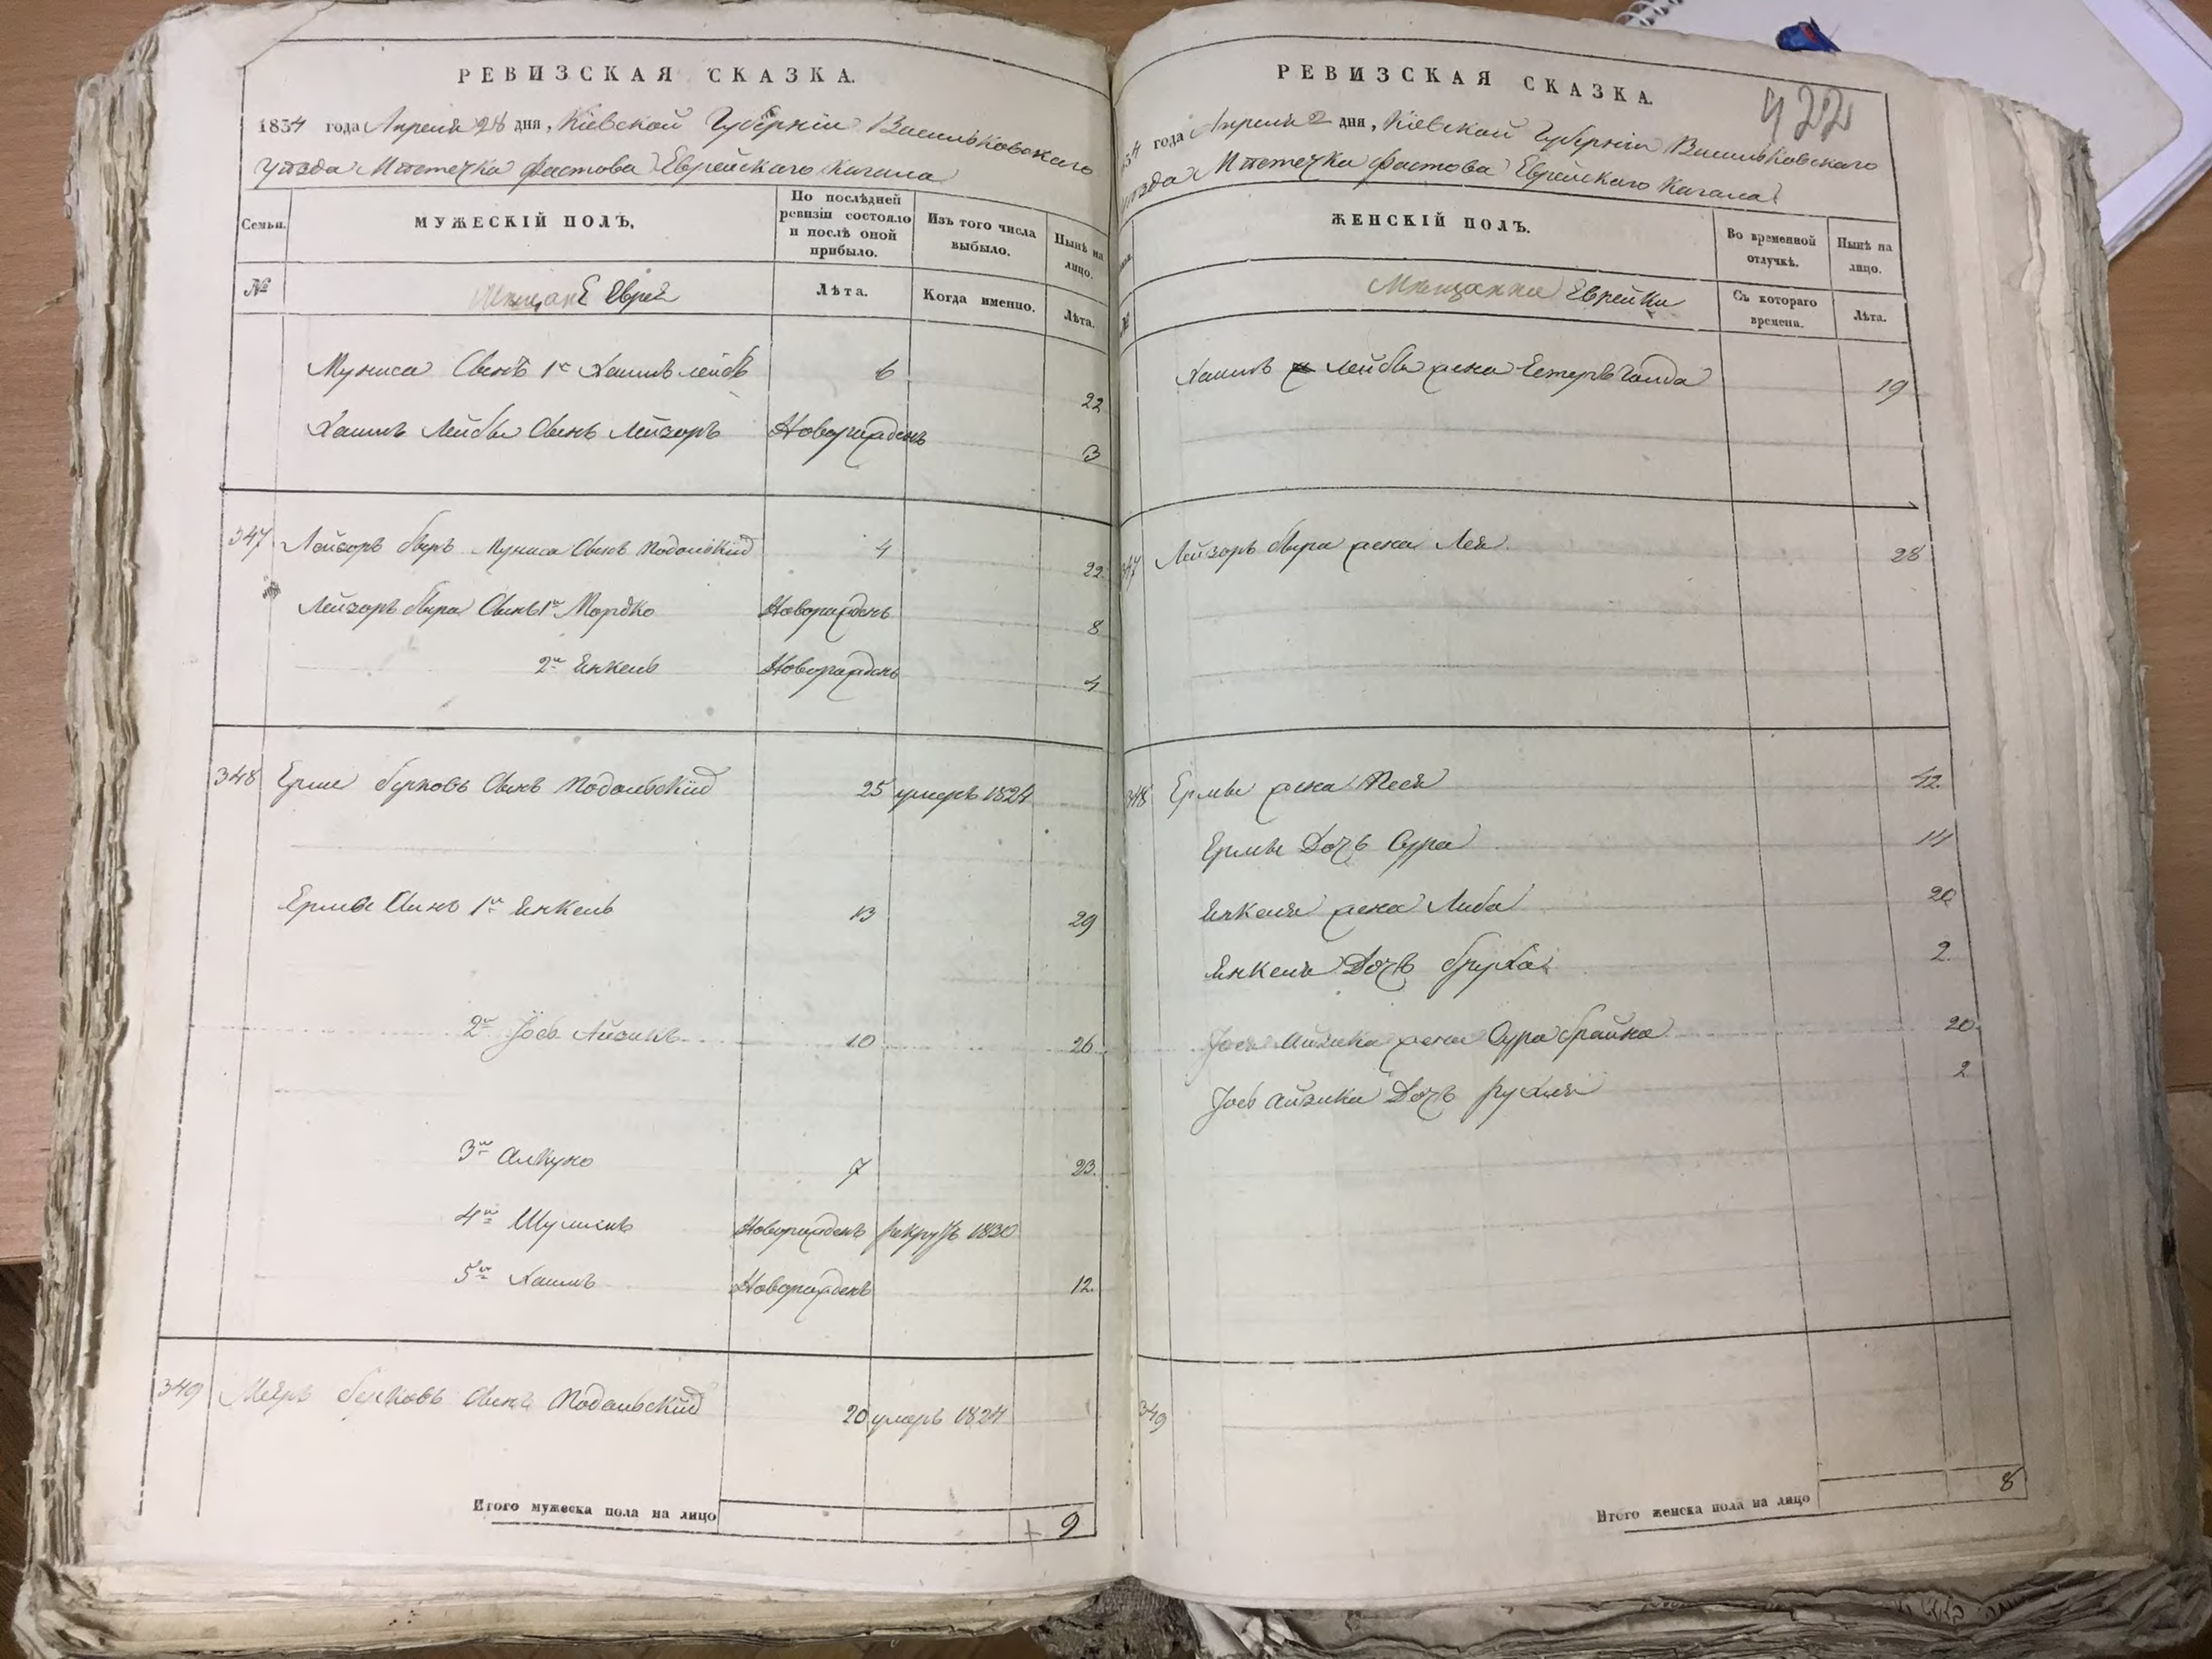 РЕВИЗСКАЯ СКАЗКА.
1834 года Апреля 28 дня, Кіевской Губерніи Васильковского
Уѣзда Мѣстечка Фастова Еврейскаго Кагала
Семьи.
МУЖЕСКІЙ ПОЛЪ.
По послѣдней ревизіи состояло и послѣ оной прибыло.
Изъ того числа выбыло.
Нынѣ на лицо.
№
Мещане Евреи
Лѣта.
Когда именно.
Лѣта.
Муниса Сынъ 1й Хаимъ Лейбъ 6 22
Хаимъ Лейбы Сынъ Лейзоръ Новорожденъ 3
347 Лейзоръ Беръ Муниса Сынъ Подольскій 4 22
Лейзоръ Бера Сынъ 1й Мордко Новорожденъ 8
2й Янкель Новорожденъ 4
348 Ерше Берковъ Сынъ Подольскій 25 умеръ 1824
Ершы Сынъ 1й Янкель 13 29
2й Іось Айзикъ 10 26
3й Алкуно 7 23.
4й Шулимъ Новорожденъ рекрутъ 1830
5й Хаимъ Новорожденъ 12.
349 Мееръ Берковъ Сынъ Подольскій 20 умеръ 1824
Итого мужеска пола на лицо 9
РЕВИЗСКАЯ СКАЗКА.
422
34 года Апреля 2 дня, Кіевской Губерніи Васильковскаго
уѣзда Мѣстечка Фастова Еврейскаго Кагала
ЖЕНСКІЙ ПОЛЪ.
Во временной отлучкѣ.
Нынѣ на лицо.
№
Мещанки Еврейки
Съ котораго времена.
Лѣта.
Хаимъ Лейбы жена Естеръ Голда 19
347 Лейзоръ Бера жена Лея 28
348 Ершы жена Песя 42.
Ершы Дочь Сура 14
Янкеля жена Либа 20
Янкеля Дочь Бруха 2.
Іося Айзика жена Сура Брайна 20.
Іось Айзика Дочь Рухля 2
349
Итого женска пола на лицо 8